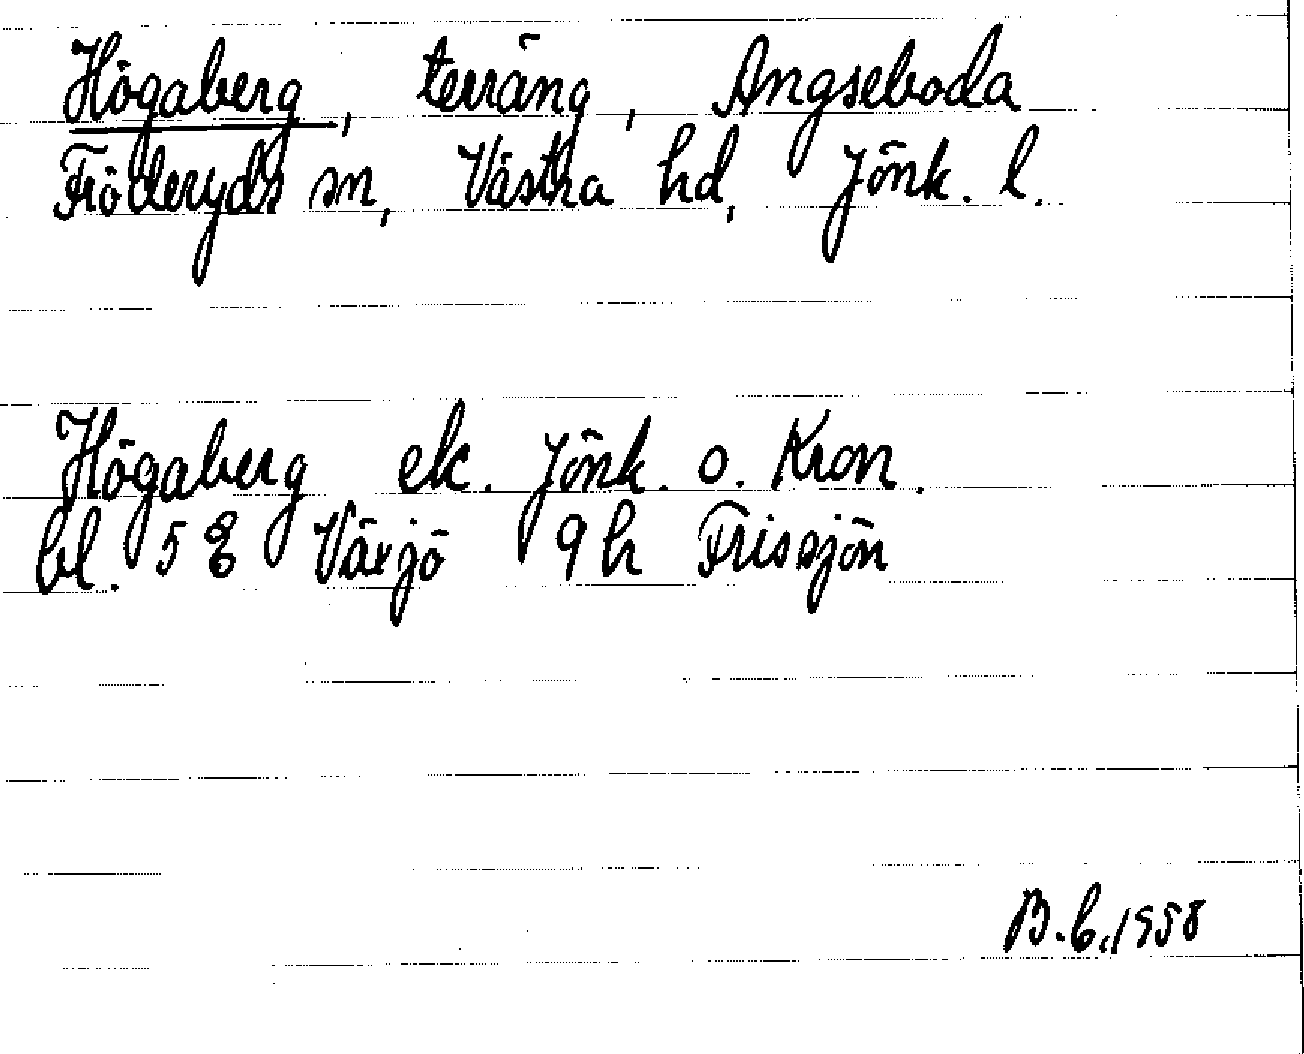 Högaberg, terräng, Angseboda
Fröderyds sn, Västra hd, Jönk. l.
Högaberg ek. Jönk. o. Kron.
bl. 5 E Växjö 9h Frissjön
1958